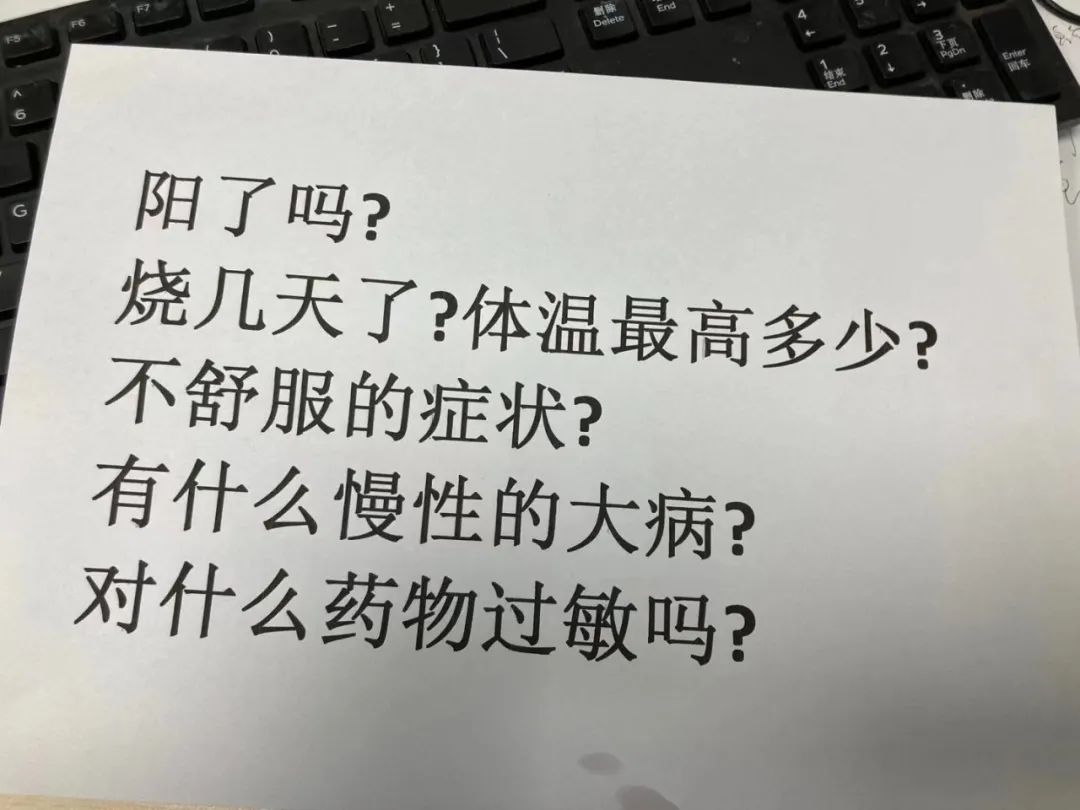 F5 F6 F7 ) - + = } | \ 删除 Delete End 4 ← 5 6 →
^ 6 1 结束 End 2 ↓ 3 下页 PgDn Enter 回车
. 删除
G
阳了吗?
烧几天了?体温最高多少?
不舒服的症状?
有什么慢性的大病?
对什么药物过敏吗?